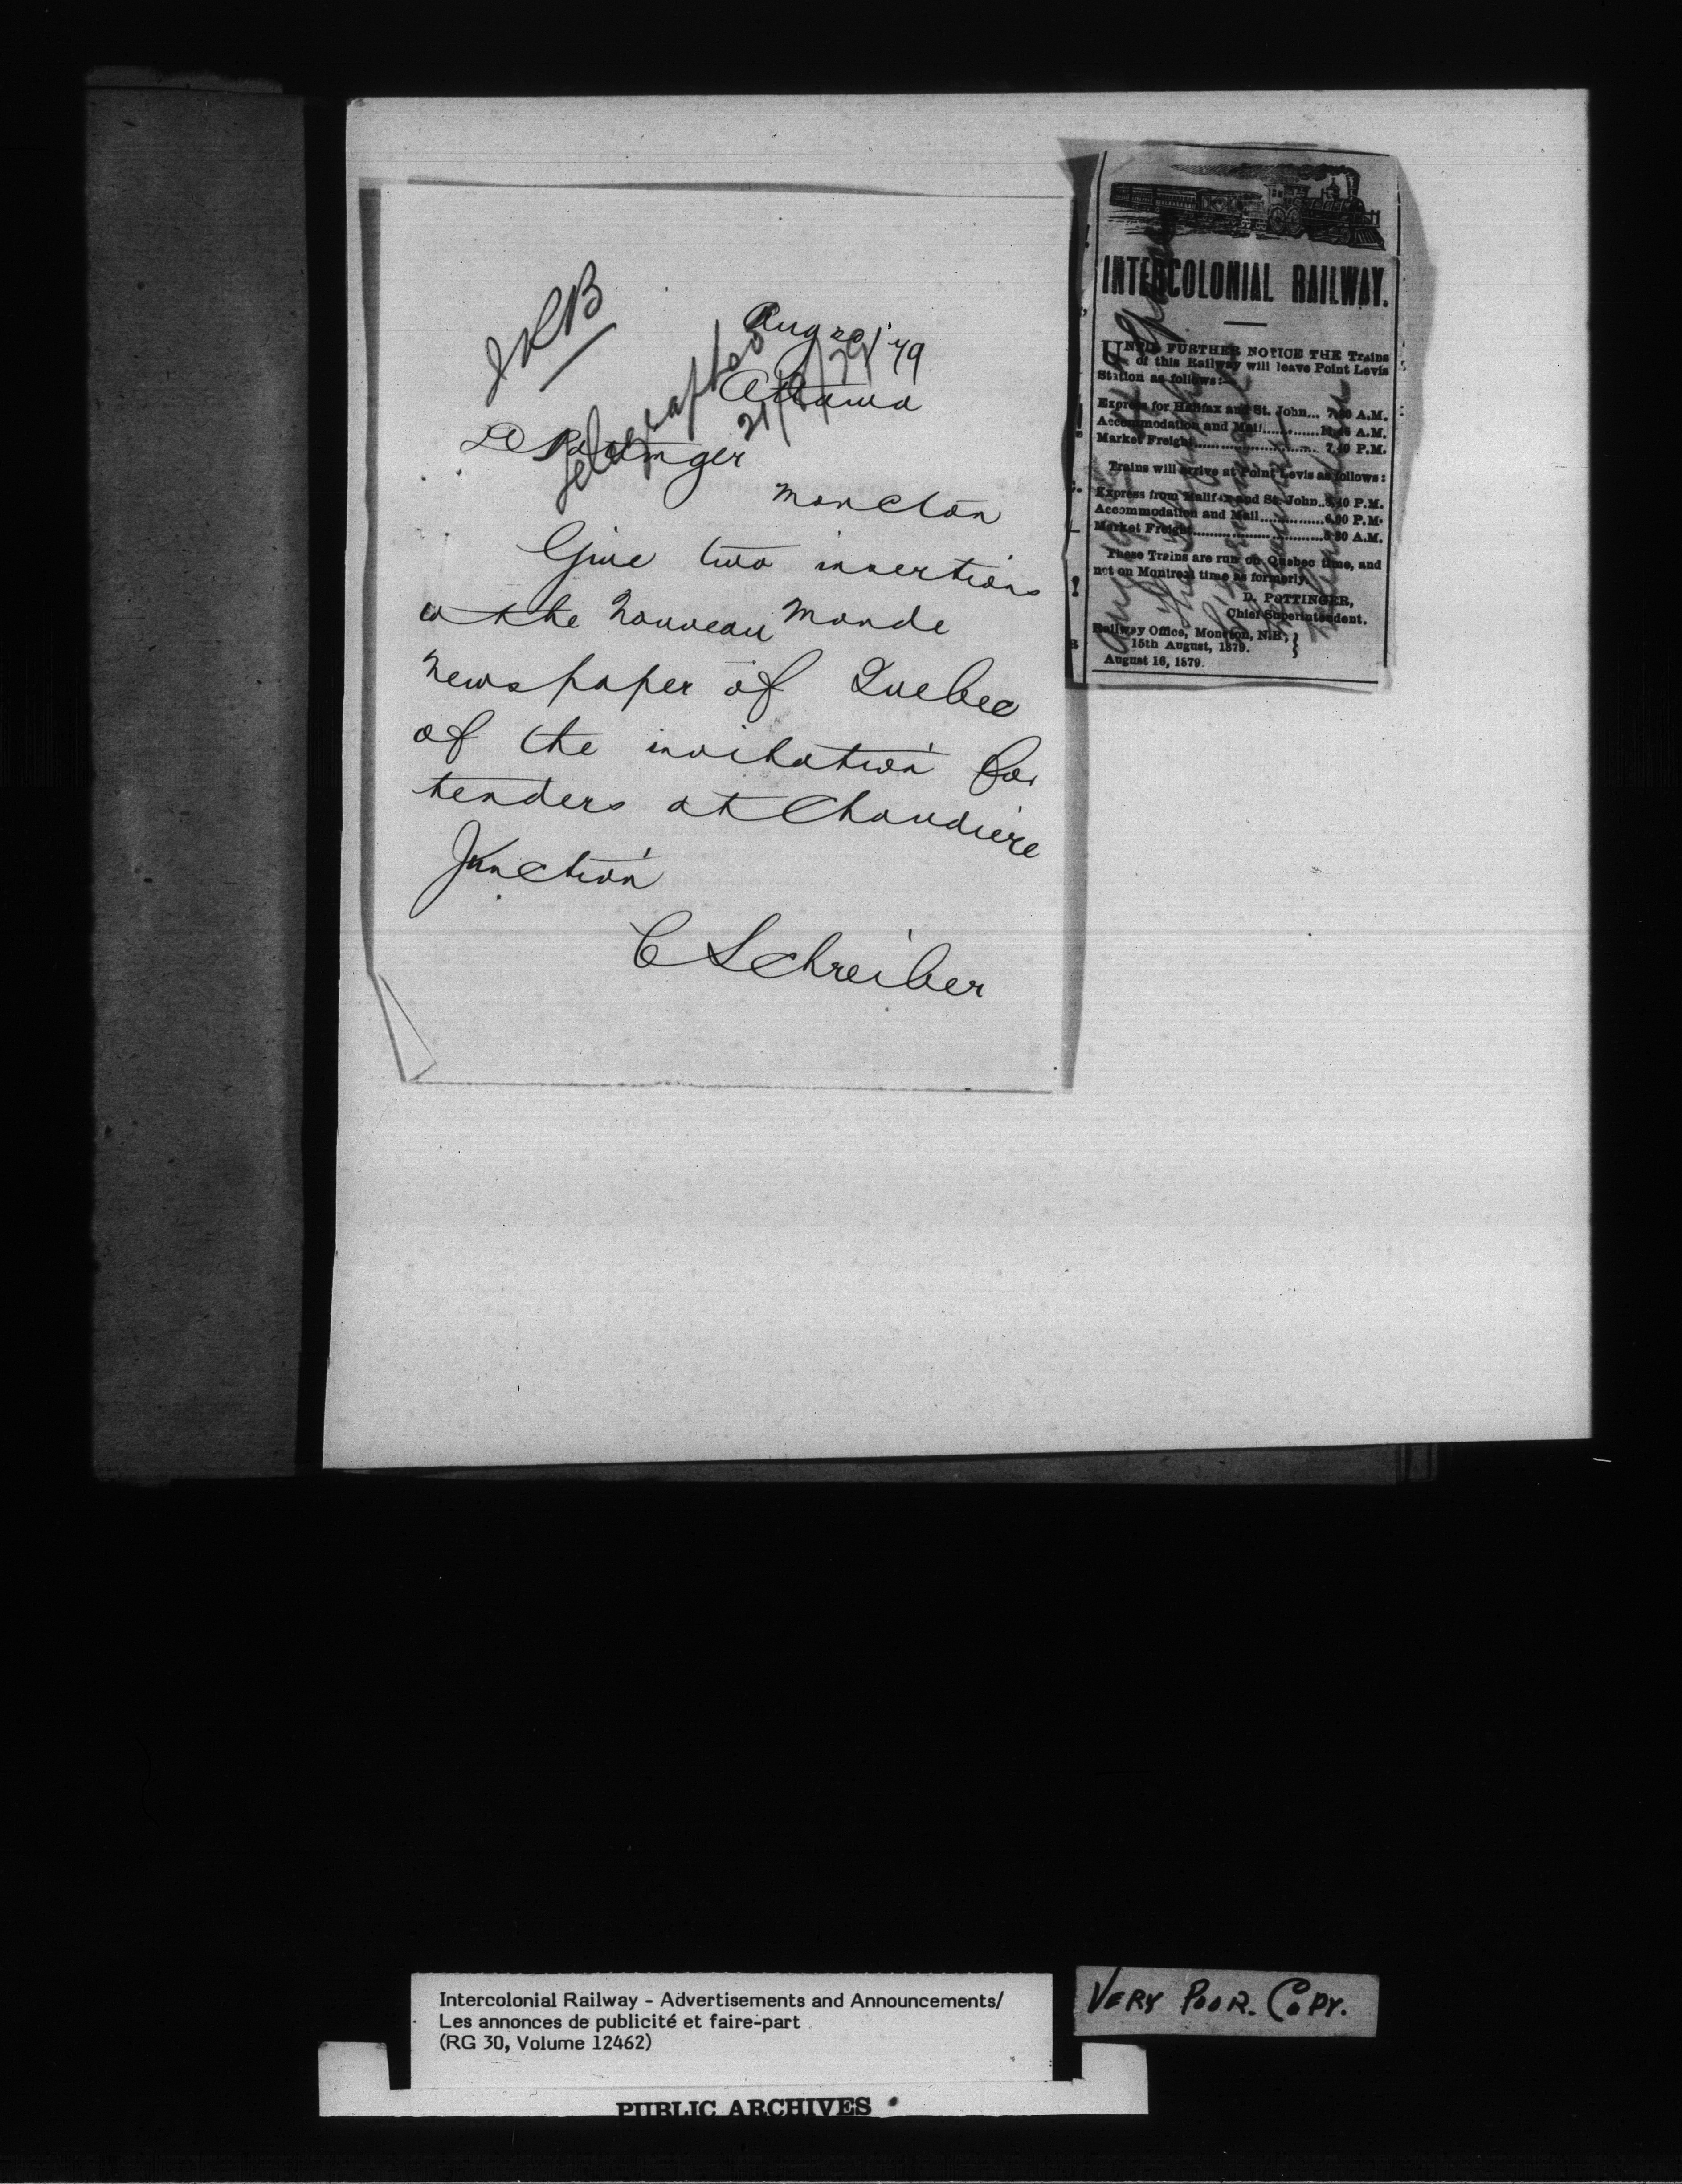 JLB
Aug 20/79
Ottawa
telegraphed
21/8/79
D Pottinger
Moncton
Give two insertions
to the Nouveau Monde
newspaper of Quebec
of the invitation for
tenders at Chaudiere
Junction
C Schreiber
INTERCOLONIAL RAILWAY.
UNTIL FURTHER NOTICE THE Trains
of this Railway will leave Point Levis
Station as follows:—
Express for Halifax and St. John... A.M.
Accommodation and Mail............. A.M.
Market Freight........................... P.M.
Trains will arrive at Point Levis as follows:
Express from Halifax and St. John.. P.M.
Accommodation and Mail............... P.M.
Market Freight.............................. A.M.
These Trains are run on Quebec time, and
not on Montreal time as formerly.
D. POTTINGER,
Chief Superintendent.
Railway Office, Moncton, N.B., }
15th August, 1879.
August 16, 1879.
Intercolonial Railway - Advertisements and Announcements/
Les annonces de publicité et faire-part
(RG 30, Volume 12462)
VERY POOR. COPY.
PUBLIC ARCHIVES